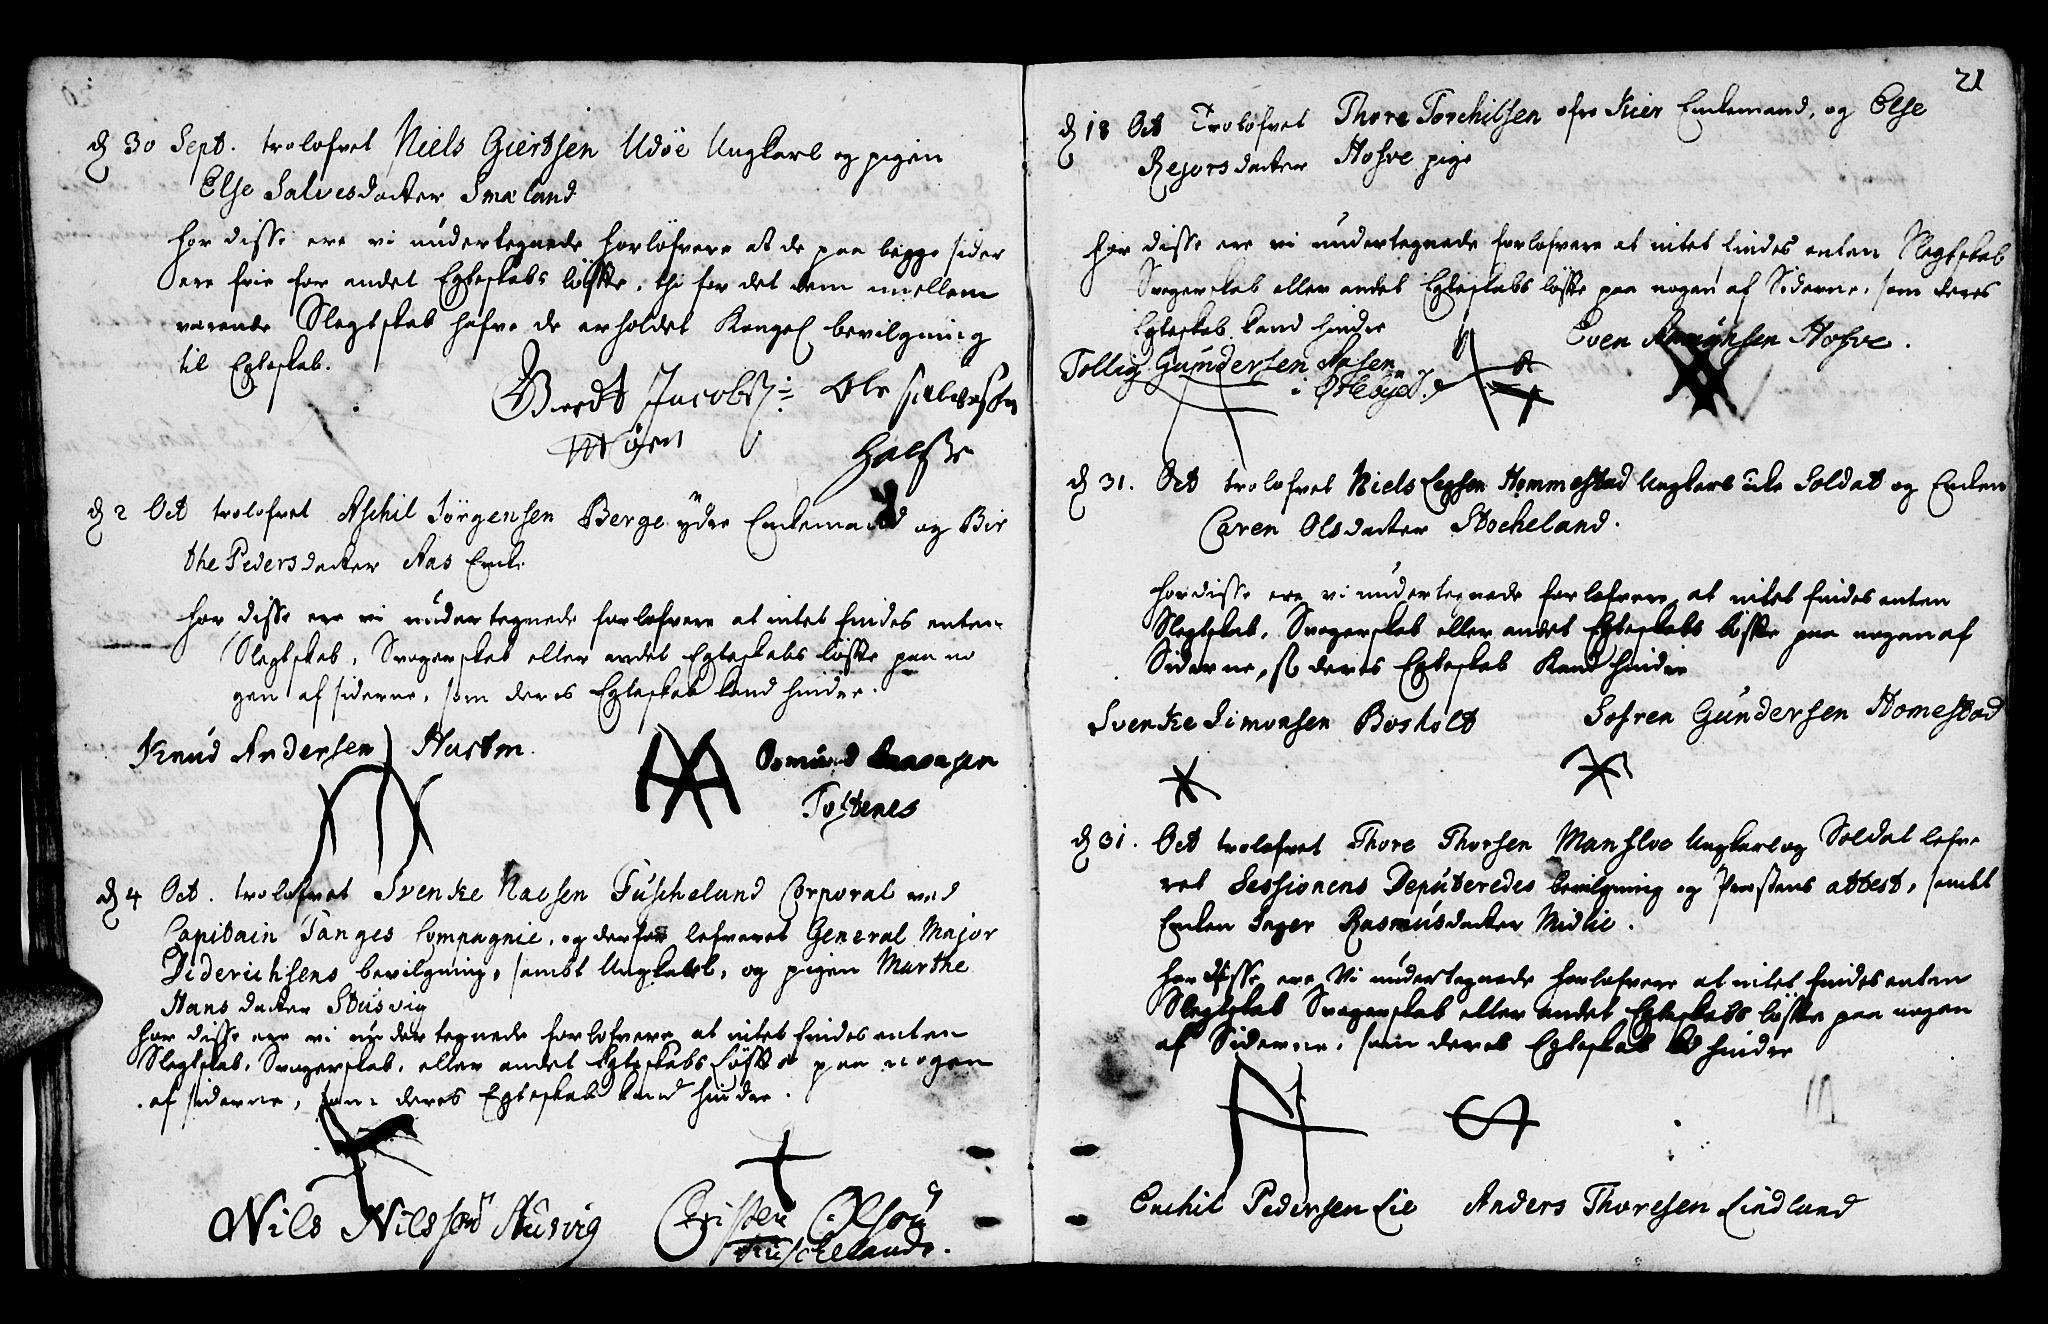 d 30 Sept. trolofvet Niels Giertsen Udöe Ungkarl og pigen
Else Salvesdaatter Smaland
for disse ere vi undertegnede forlofvere at de paa begge sider
ere frie for andet Egteskabs löffte, thi for det dem imellem
værende Slegtskab hafve de erholdet Kongel bevilgning
til Egteskab.
Giertt Jacobss: Ole Sallvessen
Mögen Halsse
d 2 Oct trolofvet Aschil Jörgensen Berge ydre Enkemand og Bir
the Pedersdaatter Aas Enke
for disse ere vi undertegnede forlofvere at intet findes enten
Slegtskab, Svogerskab eller andet Egteskabs löffte paa no
gen af siderne, som deres Egteskab kand hindre.
Knud Andersen Haaetm.
Osmund Aanonsen
Tostenes
d 4 Oct. trolofvet Svenke Naesen Fuscheland Corporal ved
Capitain Tanges Compagnie, og derfor lefveret General Major
Diderichsens bevilgning, sambt Ungkarl, og pigen Marthe
Hansdaatter Stusvig
for disse ere vi undertegnede forlofvere at intet findes enten
Slegtskab, Svogerskab, eller andet Egteskabs Löffte paa nogen
af siderne, som deres Egteskab kand hindre.
Nils Nilssen Stusvig Christen Olsøn
Fuschelande.
21
d 18 Oct Trolofvet Thore Torchilsen ofre Kier Enkemand, og Else
Rejersdaatter Hofve pige
for disse ere vi undertegnede forlofvere at intet findes enten Slegtskab
Svogerskab eller andet Egteskabs löffte paa nogen af Siderne, som deres
Egteskab kand hindre
Even Aanunsen Hofve.
Tollig Gundersen Aasen
i
d 31. Oct trolofvet Niels Legsen Hommestad Ungkarl icke Soldat og Enken
Caren Olsdaatter Stocheland.
for disse ere vi undertegnede forlofvere at intet findes enten
Slegtskab, Svogerskab eller andet Egteskabs löffte paa nogen af
Siderne, s deres Egteskab Kand hindre
Svenke Simonsen Bosholt Sofren Gundersen Homestad
d 31. Oct trolofvet Thore Thorsen Mansloe Ungkarl og Soldat lefve
ret Sessionens Deputeredes bevilgning og Præstens attest, sambt
Enken Inger Rasmusdaatter Midlie.
for disse ere Vi undertegnede forlofvere at intet findes enten
Slegtskab Svogerskab eller andet Egteskabs löffte paa nogen
af Siderne, som deres Egteskab kd hindre
Enchil Pedersen Lie Anders Thoresen Lindland